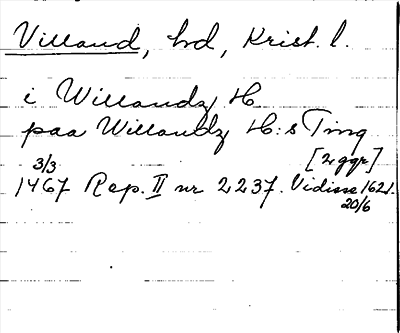 Villand, hd, Krist. l.
i Willandz H
paa Willandz H:s Ting
[2 ggr]
3/3
1467 Rep. II nr 2237. Vidisse 1621.
20/6